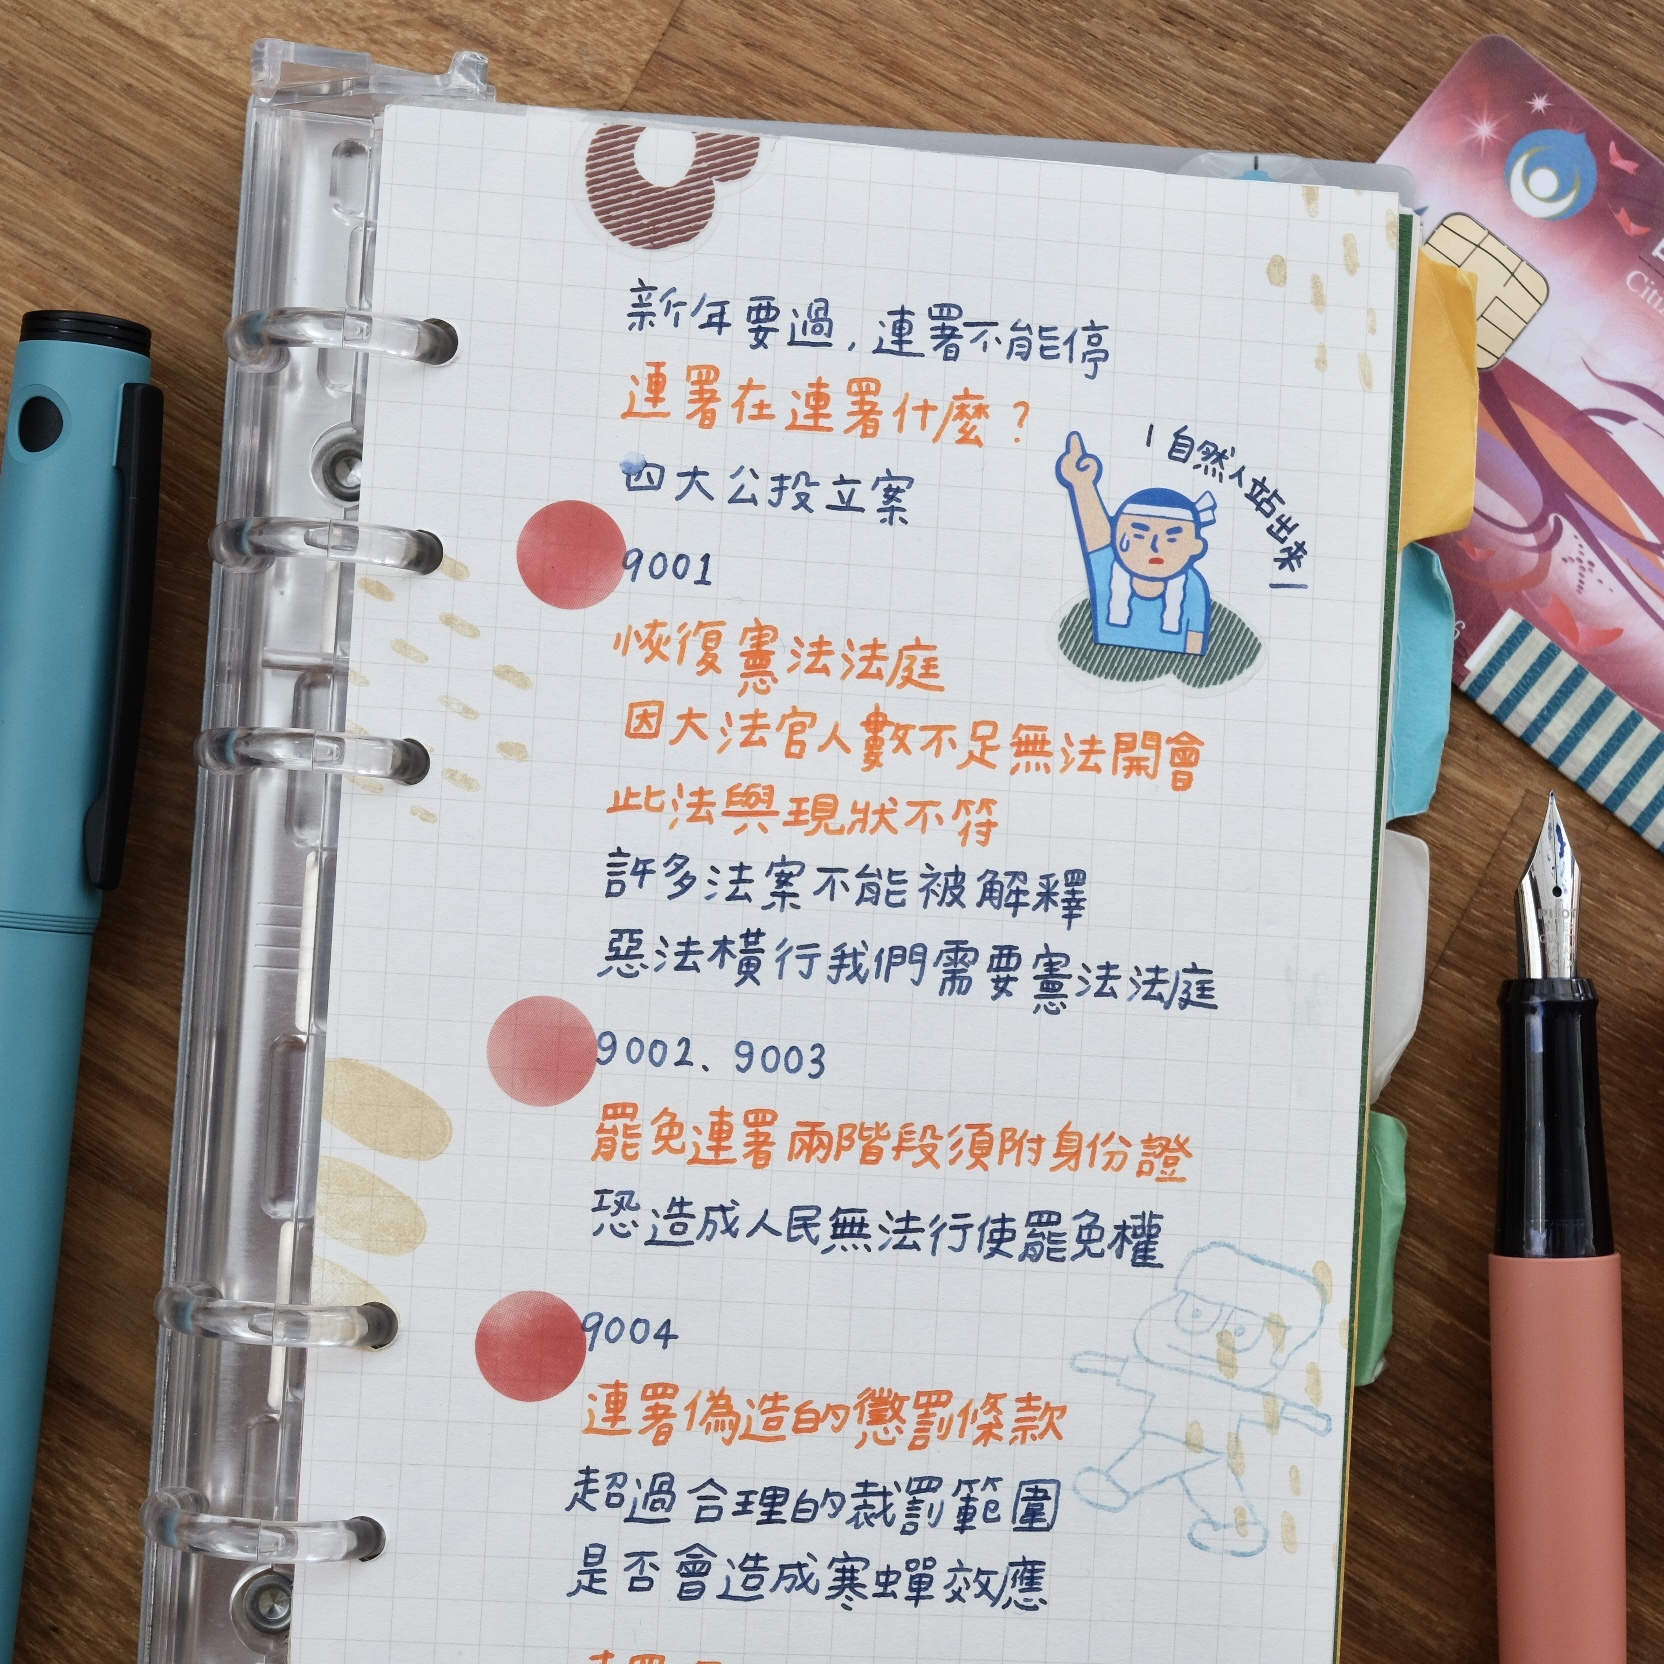 新年要過，連署不能停
連署在連署什麼？
四大公投立案
自然人站出來
9001
恢復憲法法庭
因大法官人數不足無法開會
此法與現狀不符
許多法案不能被解釋
惡法橫行我們需要憲法法庭
9002、9003
罷免連署兩階段須附身份證
恐造成人民無法行使罷免權
9004
連署偽造的懲罰條款
超過合理的裁罰範圍
是否會造成寒蟬效應